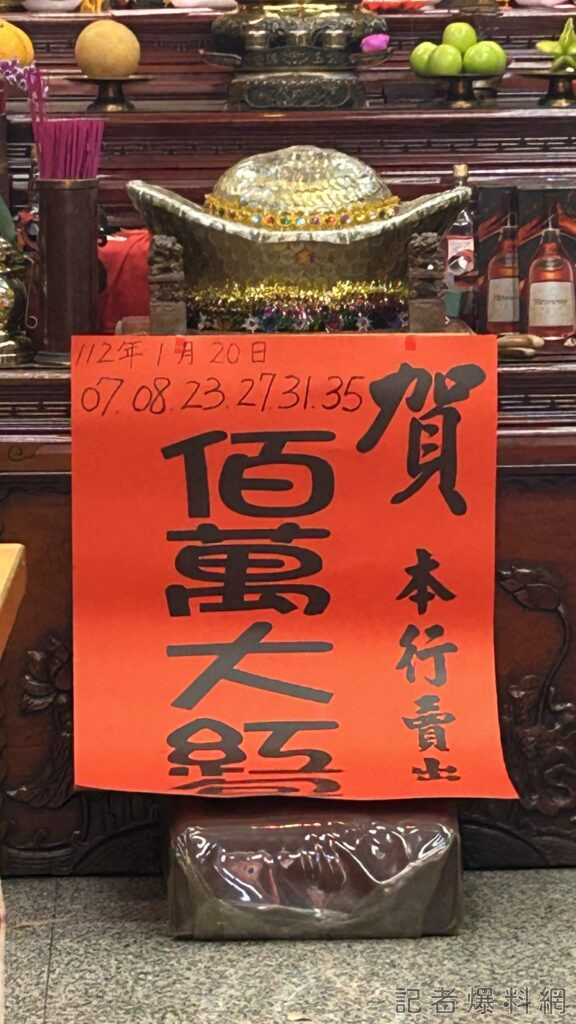 112年1月20日
07.08.23.27.31.35
賀
本行賣出
佰萬大紅
Hennessy
記者爆料網